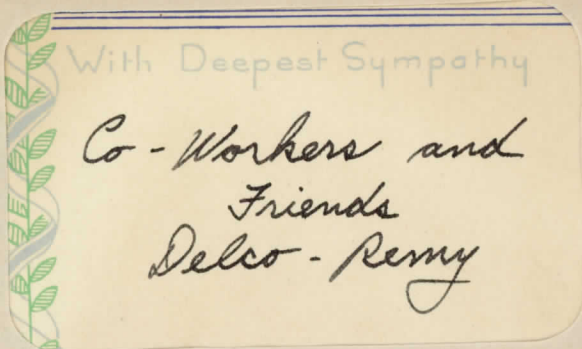 With Deepest Sympathy
Co-Workers and
Friends
Delco-Remy